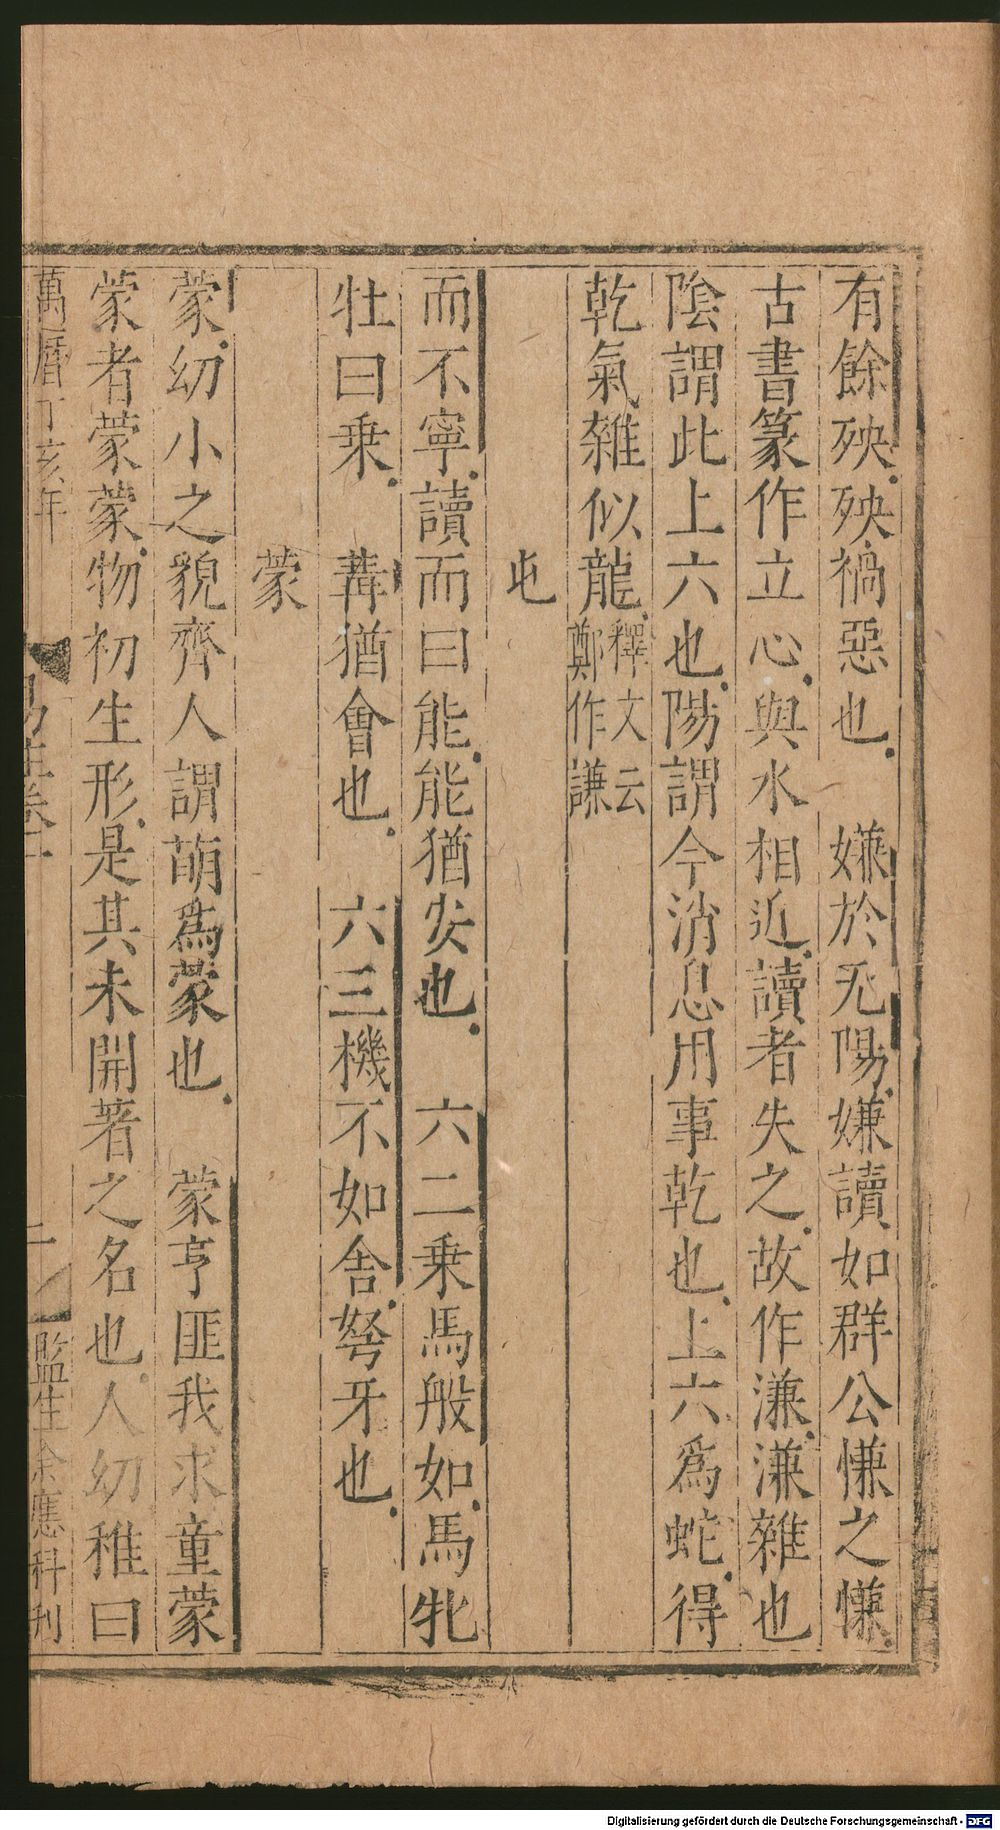 有餘殃殃禍惡也 嫌於无陽嫌讀如群公慊之慊
古書篆作立心與水相近讀者失之故作溓溓雜也
陰謂此上六也陽謂今消息用事乾也上六爲蛇得
乾氣雜似龍釋文云鄭作謙
屯
而不寧讀而曰能能猶安也 六二乗馬般如馬牝
牡曰乗 冓猶會也 六三機不如舍弩牙也
蒙
蒙幼小之貌齊人謂萌爲蒙也 蒙亨匪我求童蒙
蒙者蒙蒙物初生形是其未開著之名也人幼稚曰
萬曆丁亥年
二
監生余應科刊
Digitalisierung gefördert durch die Deutsche Forschungsgemeinschaft - DFG